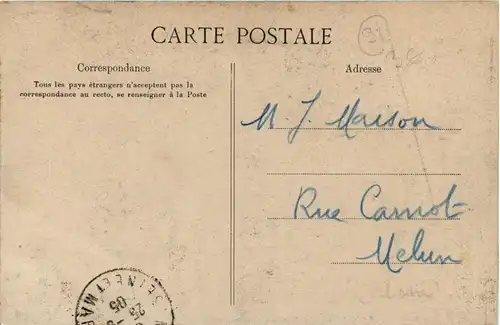 CARTE POSTALE
31
Correspondance
Tous les pays étrangers n'acceptent pas la
correspondance au recto, se renseigner à la Poste
Adresse
M. J. Maison
Rue Carnot
Melun
SEINE ET MAR
05